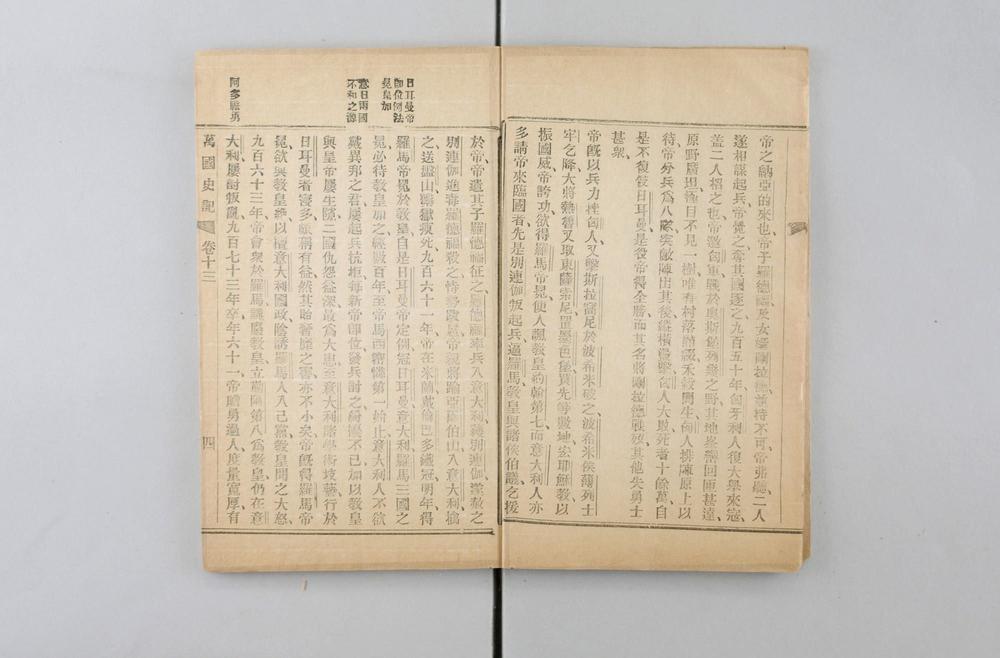 帝之納亞的來也帝子羅德福及女壻剛拉德並持不可帝弗聽二人
遂相謀起兵帝覺之奪其國逐之九百五十年匈牙利人復大舉來寇
蓋二人招之也帝邀匈軍戰於奧斯堡列幾之野其地岑巒回匝甚遠
原野廣坦極目不見一樹唯有村落游綴禾穀閒生匈人排陳原上以
待帝分兵爲八隊突敵陳出其後縱橫擊匈人大敗死者十餘萬自
是不復役日耳曼是役帝得全勝而其名將剛拉德戰歿其他失勇士
甚衆
帝旣以兵力挫匈人又擊斯拉窩尼於波希米破之波希米侯薄列士
牢乞降大將熱魯又取東薩索尼置墨色堡買先等數地宏耶穌敎以
振國威帝誇功欲得羅馬帝冕使人諷敎皇約翰第七而意大利人亦
多請帝來臨國者先是別連伽叛起兵逼羅馬敎皇與諸侯伯議乞援
於帝帝遣其子羅德福征之羅德福率兵入意大利獲別連伽濫赦之
別連伽逸毒羅德福殺之恃勢跋扈帝親將踰亞爾伯山入意大利擒
之送盤山錮獄瘐死九百六十一年帝在米蘭戴倫巴多鐵冠明年得
羅馬帝冕於敎皇自是日耳曼帝定例冠日耳曼意大利羅馬三國之
冕必待敎皇加之經數百年至帝馬西密憐第一始止意大利人不欲
戴異邦之君屢起兵抗拒每新帝卽位發兵討之紛擾不已加以敎皇
與皇帝屢生隙二國仇怨益深最爲大患至意大利學術技藝行於
日耳曼者寖多雖稱有益然其貽奢靡之害亦不小矣帝旣得羅馬帝
冕欲與敎皇絶以擅意大利國政陰誘羅馬人入己黨敎皇聞之大怒
九百六十三年帝會衆於羅馬議廢敎皇立蘭第八爲敎皇仍在意
大利屢討叛亂九百七十三年卒年六十一帝膽勇過人度量寬厚有
日耳曼帝
卽位例法
冕皇加
意日兩國
不和之源
阿多膽勇
萬國史記
卷十三
四